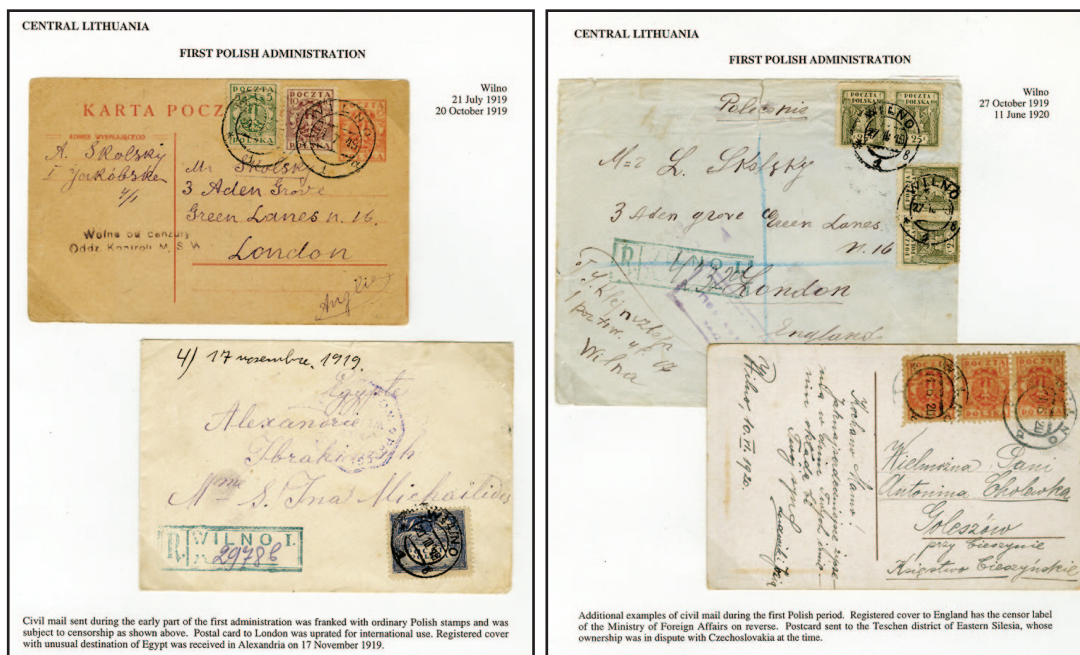 CENTRAL LITHUANIA
FIRST POLISH ADMINISTRATION
Wilno
21 July 1919
20 October 1919
KARTA POCZ
POCZTA
POLSKA
A. Skolsky
Mr Skolsky
3 Aden Grove
Green Lanes n. 16.
London
Wolne od cenzury
Oddz. Kontroli M. S. W.
Anglia
4) 17 novembre. 1919.
Egypte
Alexandrie
Mme S. Ina Michailidis
R. WILNO I.
29786
WILNO
Civil mail sent during the early part of the first administration was franked with ordinary Polish stamps and was
subject to censorship as shown above. Postal card to London was uprated for international use. Registered cover
with unusual destination of Egypt was received in Alexandria on 17 November 1919.
CENTRAL LITHUANIA
FIRST POLISH ADMINISTRATION
Wilno
27 October 1919
11 June 1920
Polecenie
POCZTA
POLSKA
25
WILNO
L. Skolsky
3 Aden grove Green Lanes.
N. 16
London
England
Wilna
POCZTA
Kochana Mamo!
Wilno, 10.VI.1920.
Wielmożna Pani
Antonina Cholewka
Goleszów
przy Cieszynie
Księstwo Cieszyńskie
Additional examples of civil mail during the first Polish period. Registered cover to England has the censor label
of the Ministry of Foreign Affairs on reverse. Postcard sent to the Teschen district of Eastern Silesia, whose
ownership was in dispute with Czechoslovakia at the time.